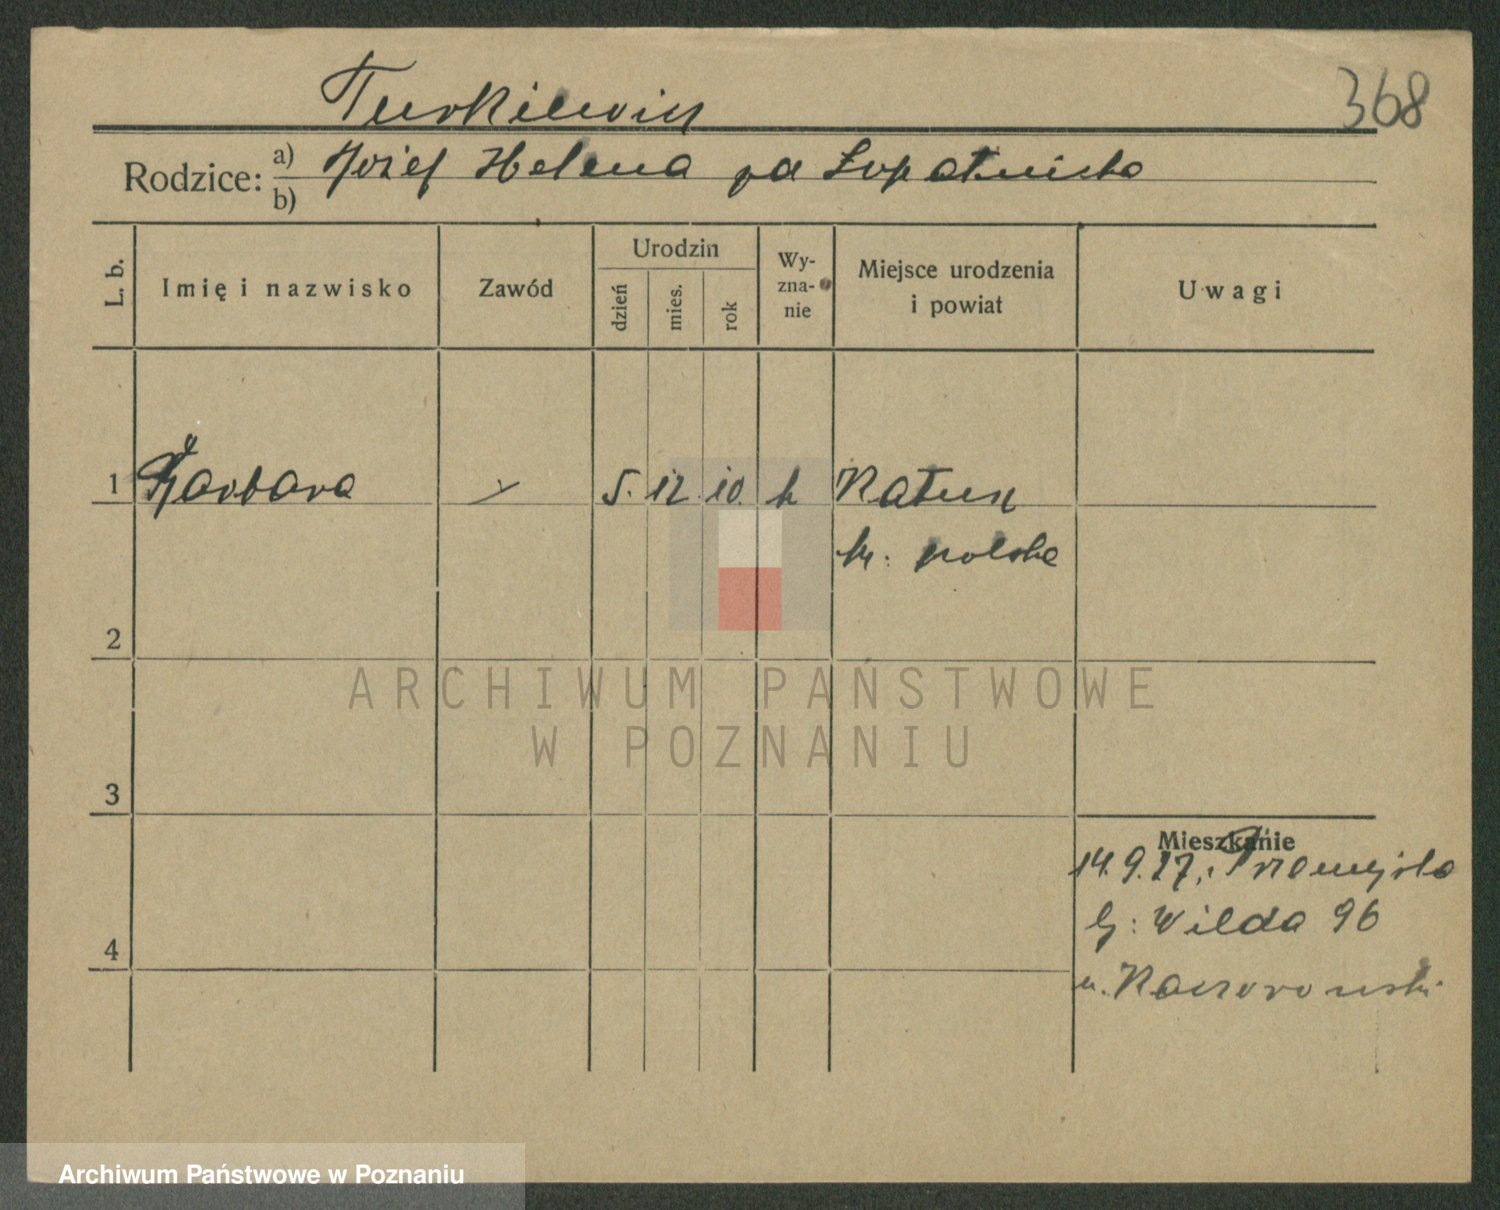 Turkiewicz
368
Rodzice: a) Józef Helena z d Łopatnicka
b)
L. b.
Imię i nazwisko
Zawód
Urodzin
dzień
mies.
rok
Wy-
zna-
nie
Miejsce urodzenia
i powiat
Uwagi
1 Barbara 5. 12. 10. k
kr. polskie
2
3
4
Mieszkanie
14.9.27, Przemysłowa
G. Wilda 96
u. Kaczorowski
ARCHIWUM PAŃSTWOWE
W POZNANIU
Archiwum Państwowe w Poznaniu